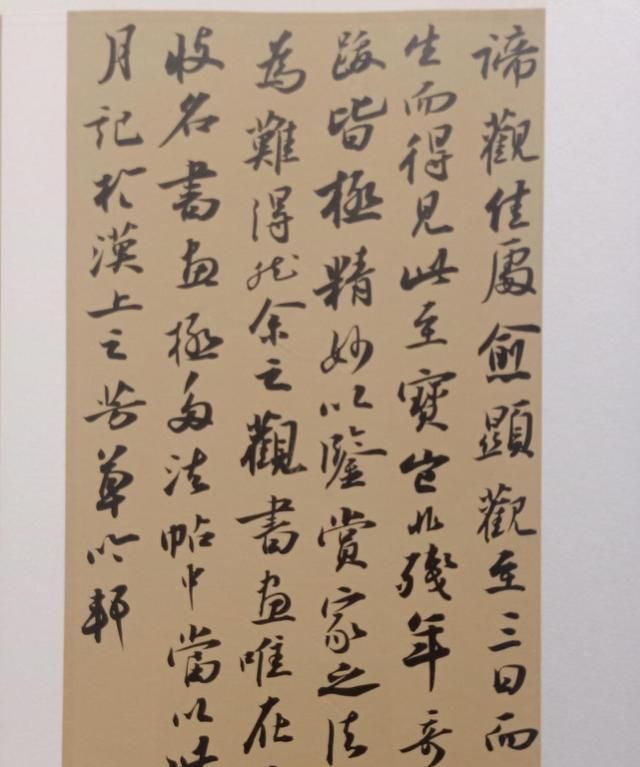 諦觀佳處愈顯觀至三日而
生而得見此至寶豈非殘年奇
跋皆極精妙以鑒賞家之法
為難得然余之觀書畫唯在
收名書畫極多法帖中當以此
月記於漢上之芳草吟軒